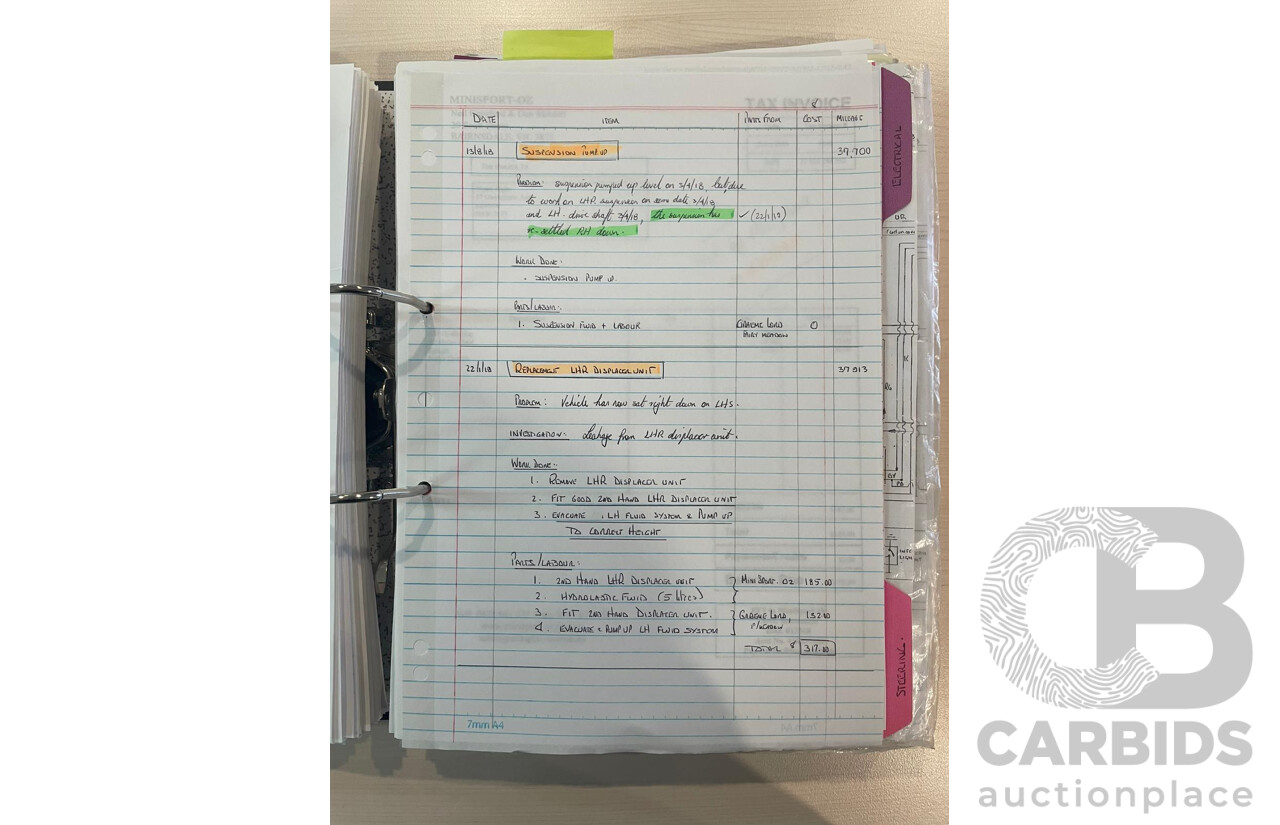 MINISPORT-OZ
TAX INVOICE
DATE ITEM PARTS FROM COST MILEAGE
13/8/18 SUSPENSION PUMP UP 37,700
PROBLEM: suspension pumped up level on 3/4/18, but due
to work on LHR suspension on same date 3/4/18
and LH drive shaft 3/4/18, the suspension has ✓ (22/1/19)
re-settled RH down.
WORK DONE:
. SUSPENSION PUMP UP.
PARTS/LABOUR:
1. SUSPENSION FLUID + LABOUR GRAEME LORD 0
FAIRY MEADOW
22/1/19 REPLACEMENT LHR DISPLACER UNIT 37913
PROBLEM: Vehicle has now sat right down on LHS.
INVESTIGATION: Leakage from LHR displacer unit.
WORK DONE:
1. REMOVE LHR DISPLACER UNIT
2. FIT GOOD 2ND HAND LHR DISPLACER UNIT
3. EVACUATE LH FLUID SYSTEM & PUMP UP
TO CORRECT HEIGHT
PARTS/LABOUR:
1. 2ND HAND LHR DISPLACER UNIT MINI SPORT. OZ 185.00
2. HYDROLASTIC FLUID (5 litres)
3. FIT 2ND HAND DISPLACER UNIT. GRAEME LORD, 132.00
4. EVACUATE & PUMP UP LH FLUID SYSTEM F/MEADOW
TOTAL $ 317.00
7mm A4
ELECTRICAL
STEERING.
CB
CARBIDS
auctionplace